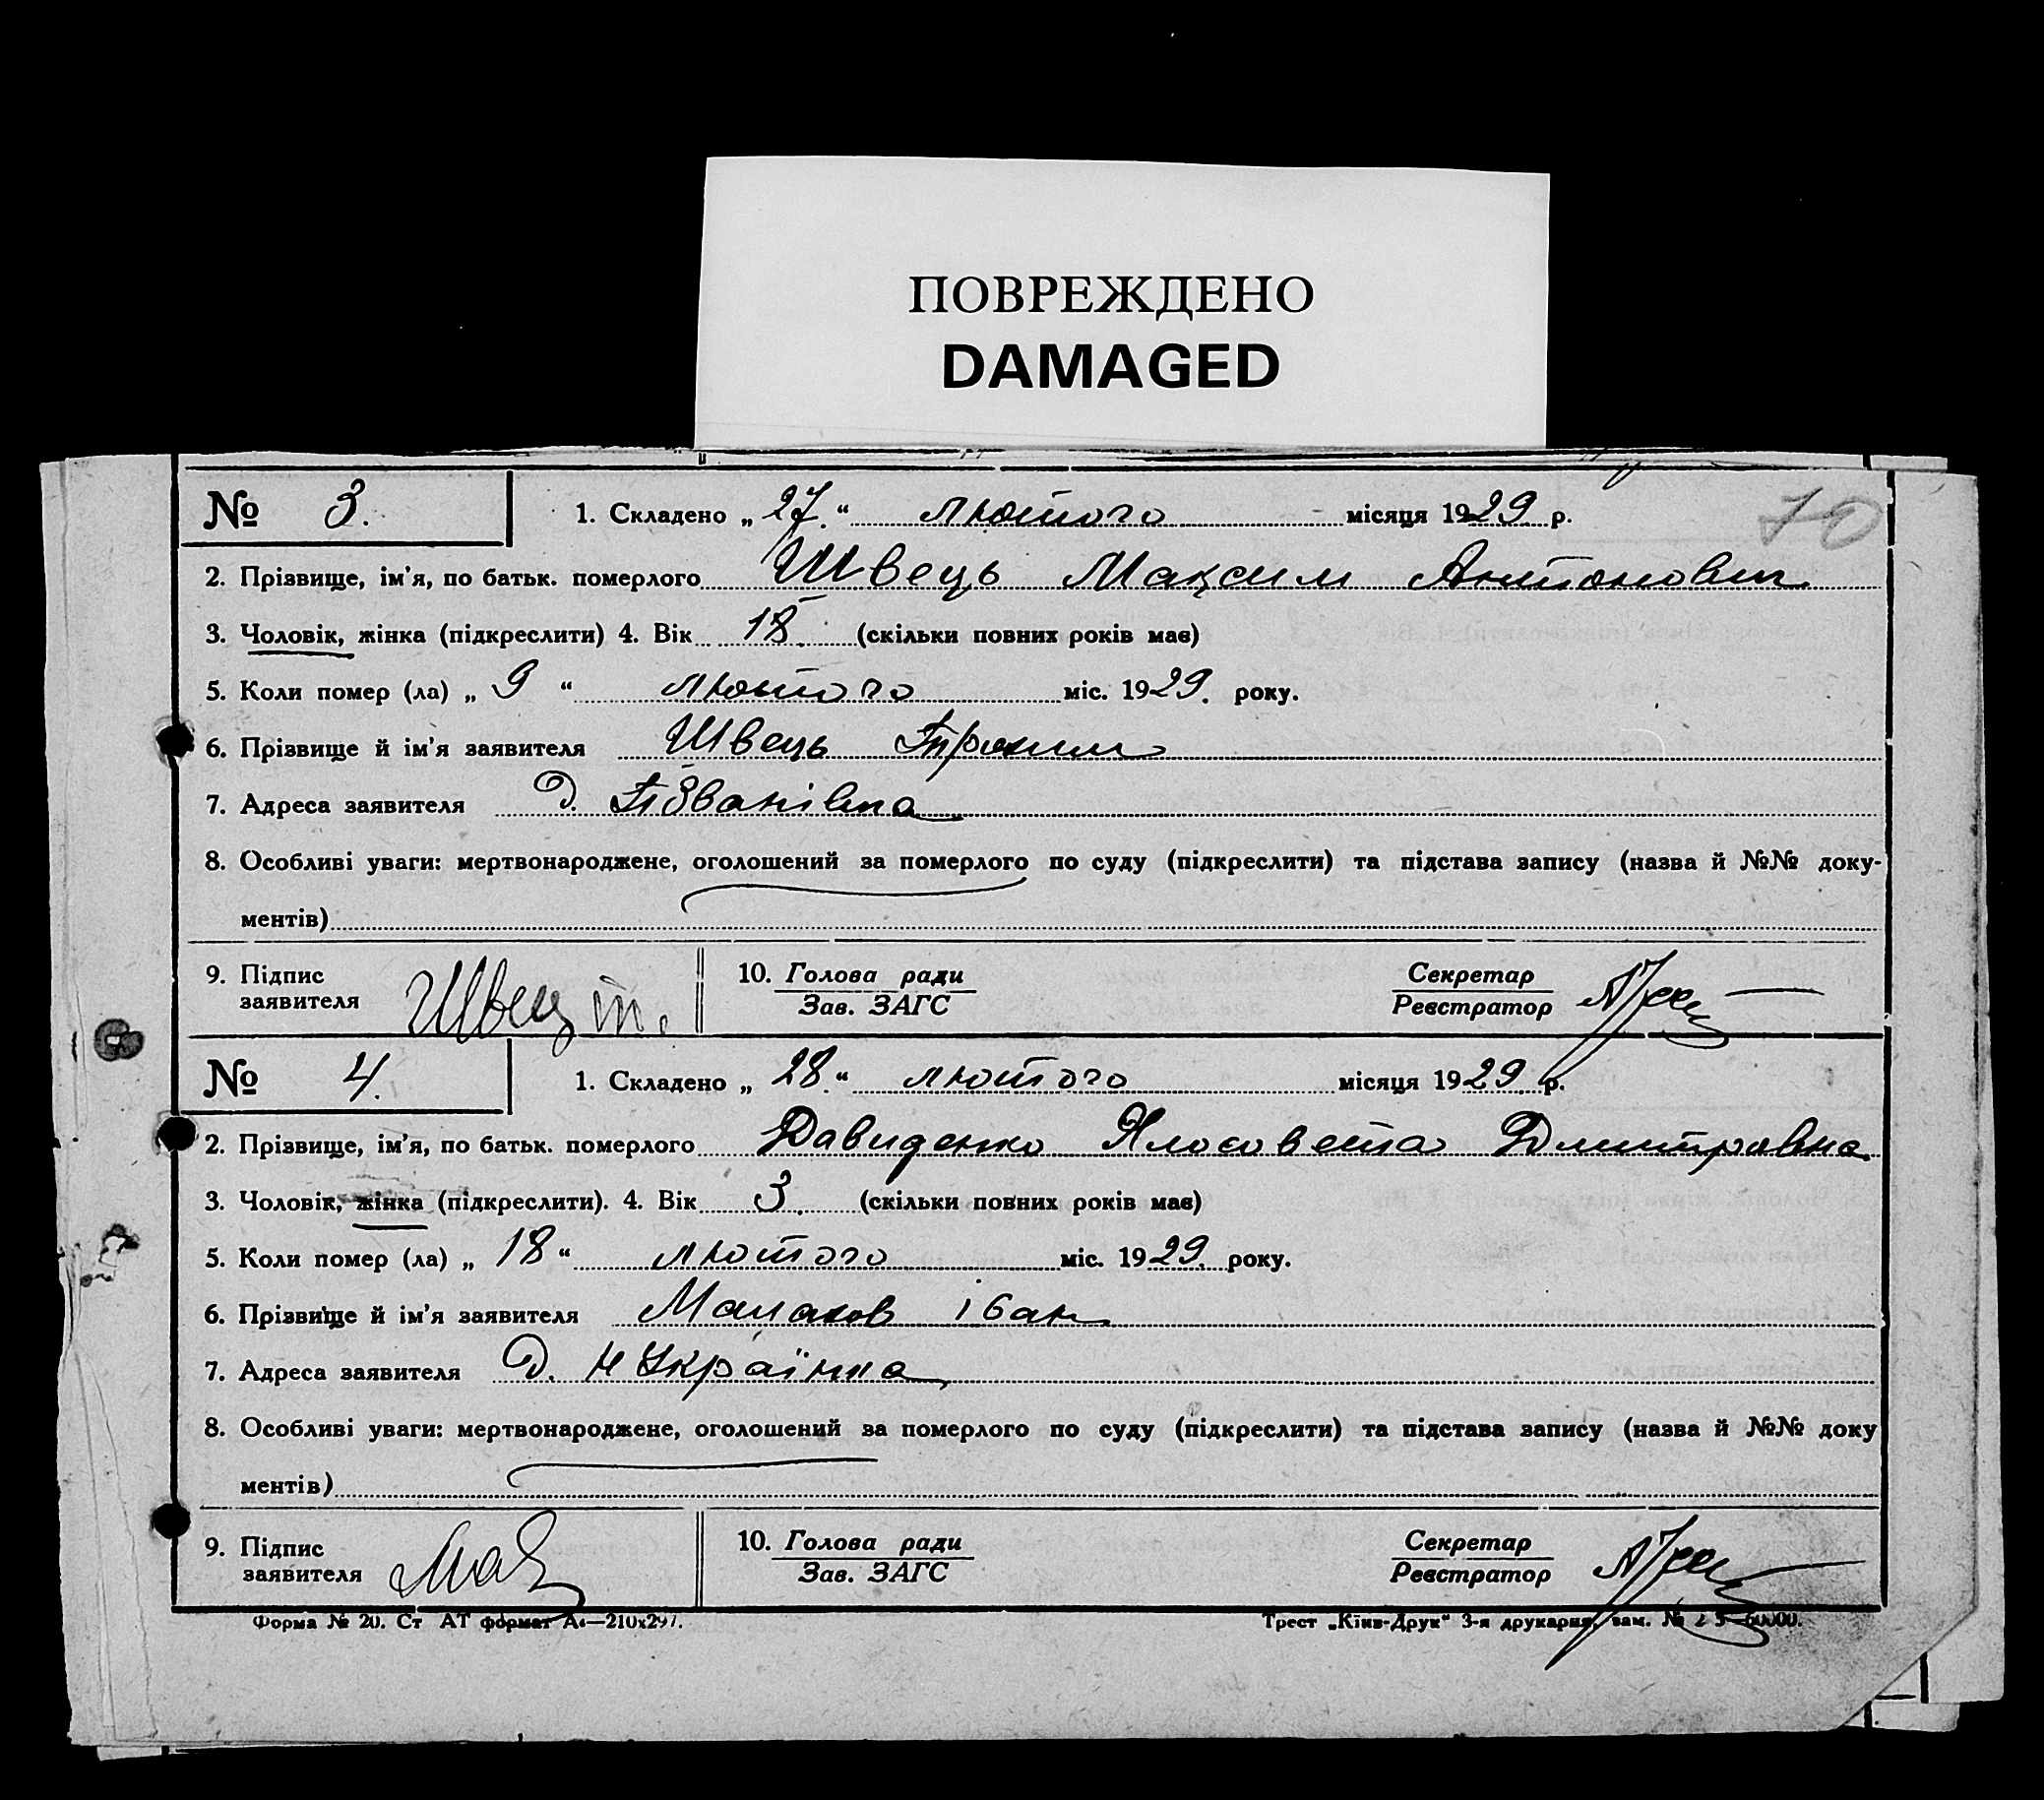 ПОВРЕЖДЕНО
DAMAGED
70
№ 3. 1. Складено „27.“ лютого місяця 1929 р.
2. Прізвище, ім'я, по батьк. померлого Швець Максим Антонович
3. Чоловік, жінка (підкреслити) 4. Вік 18 (скільки повних років має)
5. Коли помер (ла) „9“ лютого міс. 1929. року.
6. Прізвище й ім'я заявителя Швець Трохим
7. Адреса заявителя Д.
8. Особливі уваги: мертвонароджене, оголошений за померлого по суду (підкреслити) та підстава запису (назва й №№ доку-
ментів)
9. Підпис заявителя Швець Т. 10. Голова ради Зав. ЗАГС Секретар Реєстратор
№ 4. 1. Складено „28.“ лютого місяця 1929 р.
2. Прізвище, ім'я, по батьк. померлого Давиденко Дмитровна.
3. Чоловік, жінка (підкреслити). 4. Вік 3. (скільки повних років має)
5. Коли помер (ла) „18“ лютого міс. 1929. року.
6. Прізвище й ім'я заявителя Малахов іван
7. Адреса заявителя Д. Н Українка
8. Особливі уваги: мертвонароджене, оголошений за померлого по суду (підкреслити) та підстава запису (назва й №№ доку
ментів)
9. Підпис заявителя 10. Голова ради Зав. ЗАГС Секретар Реєстратор
Форма № 20. Ст АТ формат А4—210х297. Трест „Київ-Друк“ 3-я друкарня, зам. №